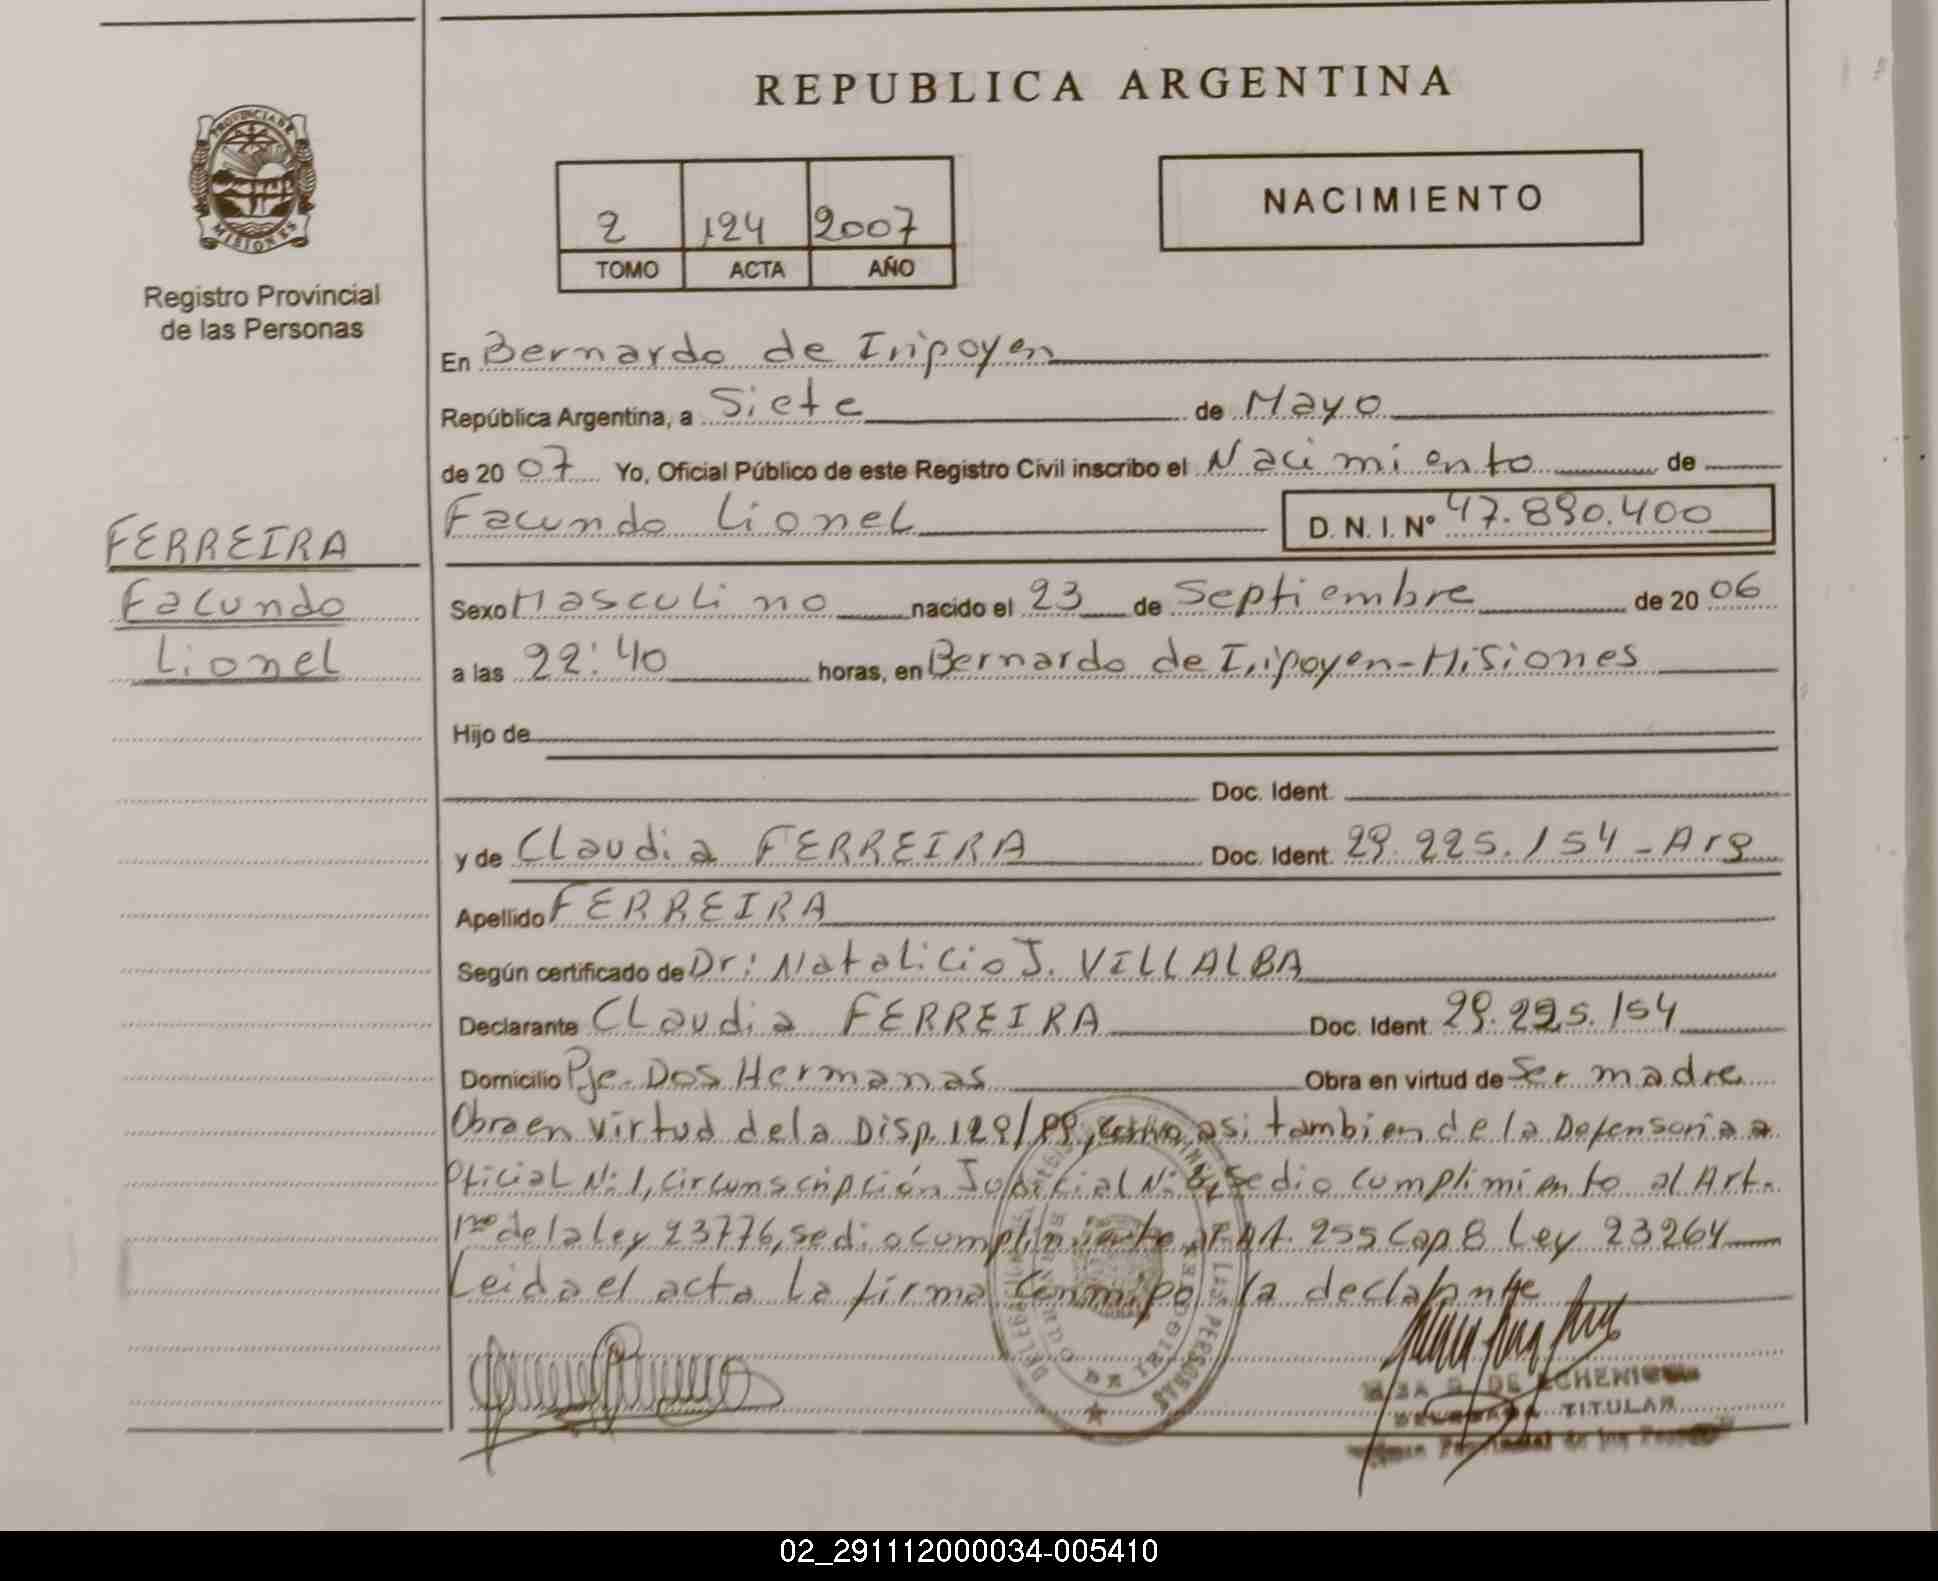 REPUBLICA ARGENTINA
PROVINCIA DE
MISIONES
Registro Provincial
de las Personas
2 124 2007
TOMO ACTA AÑO
NACIMIENTO
En Bernardo de Iripoyen
República Argentina, a Siete de Mayo
de 20 07 Yo, Oficial Público de este Registro Civil inscribo el Nacimiento de
Facundo Lionel D. N. I. Nº 47.890.400
FERREIRA
Facundo
Lionel
Sexo Masculino nacido el 23 de Septiembre de 20 06
a las 22:40 horas, en Bernardo de Iripoyen-Misiones
Hijo de
Doc. Ident.
y de Claudia FERREIRA Doc. Ident. 29.225.154-Arg
Apellido FERREIRA
Según certificado de Dr: Natalicio J. VILLALBA
Declarante Claudia FERREIRA Doc. Ident. 29.225.154
Domicilio Pje-Dos Hermanas Obra en virtud de Ser madre
Obra en virtud de la Disp. 129/99, asi tambien de la Defensoria
Oficial Nº 1, circunscripción Judicial Nº se dio cumplimiento al Art.
1ro de la ley 23776, se dio cumplimiento Art. 255 Cap 8 Ley 23264
Leida el acta la firma conmigo la declarante
DE ECHENI
TITULAR
02_291112000034-005410